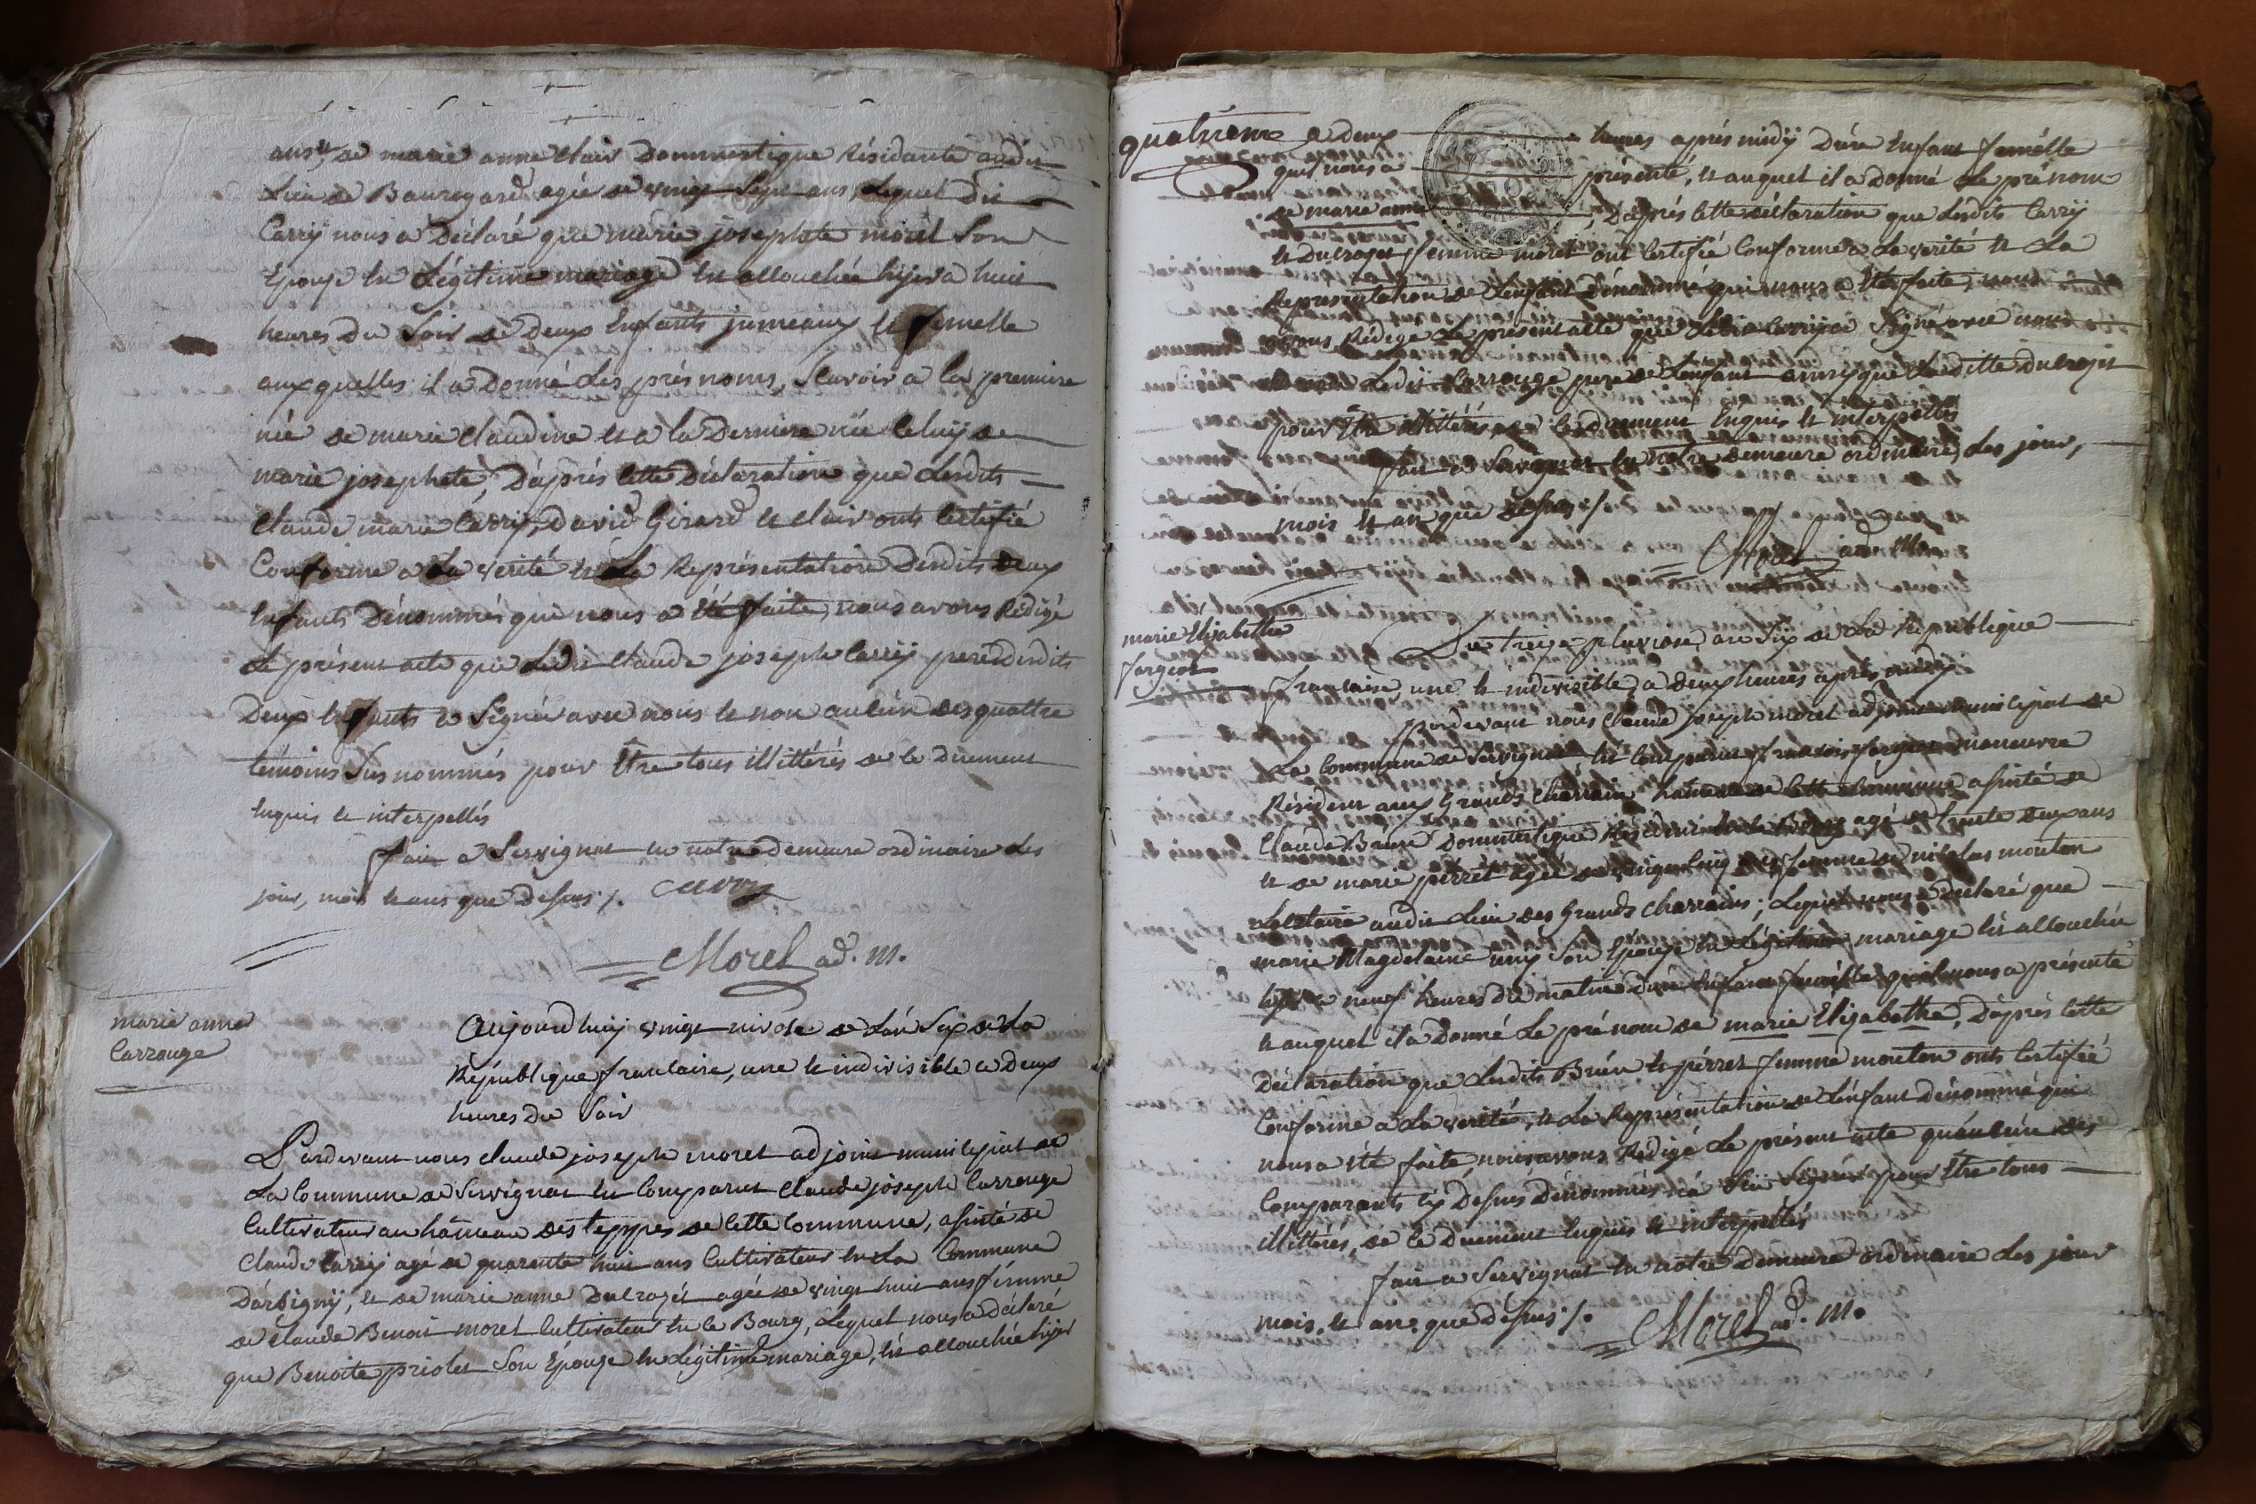 ans et de marie anne Clair Dommestique Résidante audit
Lieu de Bauregard agée de vingt Sept ans, Lequel dit
Carrÿ nous a Déclaré que marie josephete morel Son
Epouse en Légitime mariage est allouchée hijer a huit
heures du Soir de Deux Enfants jumeaux et femelle
auxquelles il a Donné Les prés noms, Scavoir a la premiere
née de marie Claudine et a la Derniere née Celuij de
marie josephete, D'aprés cette Déclaration que Lesdits
Claude marie Carrÿ, David Girard et Clair onts Certifié
Conforme a La verité et La Représentation Desdits Deux
Enfants Dénommés que nous a été faite, nous avons Rédigé
Le présent acte que Ledit Claude joseph Carrij pere desdits
Deux Enfants a Signé avec nous et non aucun des quattre
témoins Susnommés pour Etre tous illittérés de ce Duement
Enquis et interpellés
fait a Servignat en notre demeure ordinaire Les
jour, mois et ans que Dessus ⁒. Carrÿ
Morel ad. m.
marie anne
Carrouge
Aujourdhuij vingt nivose de L'an Six de La
République francaise, une et indivisible a Deux
heures du Soir
Pardevant nous Claude joseph morel adjoint municipal de
La Commune de Servignat est Comparut Claude joseph Carrouge
Cultivateur au hameau des teppes de cette Commune, assisté de
Claude Carrij agé de quarente huit ans Cultivateur en La Commune
D'arbigny, et de marie anne Ducrozet agée de vingt huit ans femme
de Claude Benoit morel Cultivateur en ce Bourg, Lequel nous a déclaré
que Benoite priolet Son Epouse en Légitime mariage, est allouchée hijer
quatrieme a deux heures aprés midÿ D'un Enfant femelle
quil nous a présenté, et auquel il a Donné Le prénom
de marie anne, D'aprés cette déclaration que Lesdits Carrij
et Ducrozet femme morel ont Certifié Conforme a La verité et La
Représentation de L'enfant Dénommé qui nous a Eté faite, nous
avons Rédigé Le présent acte que Ledit Carrij a Signé avec nous
Ledit Carrouge pere de L'enfant ainsy que Laditte Ducrozet
pour Etre illittérés, de ce duement Enquis et interpellés
fait a Servignat en notre demeure ordinaire, Les jour,
mois et an que dessus ⁒.
Morel ad. m.
marie Elisabethe
forgeot
Le treize pluviose an Six de La République
francaise, une et indivisible, a deux heures aprés midÿ
pardevant nous Claude joseph morel adjoint municipal de
La Commune de Servignat est Comparut francois forgeot manoeuvre
Résident aux Grands Charrain hameau de cette Commune assisté de
Claude Brun Dommestique agé de trente deux ans
et de marie perret agée de vingt Cinq ans femme de nicolas mouton
Locataire audit Lieu des Grands Charrains; Lequel nous a Declaré que
marie Magdelaine Son Epouse en Légitime mariage est allouchée
a neuf heures du matin d'un Enfant femelle quil nous a présenté
et auquel il a Donné Le prénom de marie Elisabethe, D'aprés cette
Déclaration que Lesdits Brun et perret femme mouton onts Certifié
Conforme a La verité, et La Représentation de L'enfant dénommé qui
nous a Eté faite, nous avons Rédigé Le présent acte qu'aucun des
Comparants cy Dessus Dénommés n'a Signé pour Etre tous
illittérés, de ce Duement Enquis et interpellés
fait a Servignat en notre demeure ordinaire Les jour
mois et an que dessus ⁒. Morel ad. m.